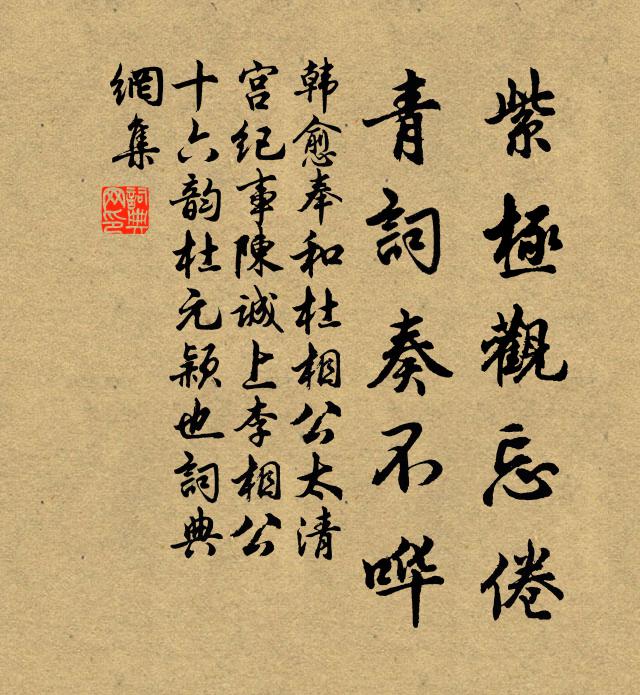 紫極觀忘倦
青詞奏不哗
韓愈奉和杜相公太清
宮紀事陳誠上李相公
十六韵杜元颖也詞典
網集
詞典
网印